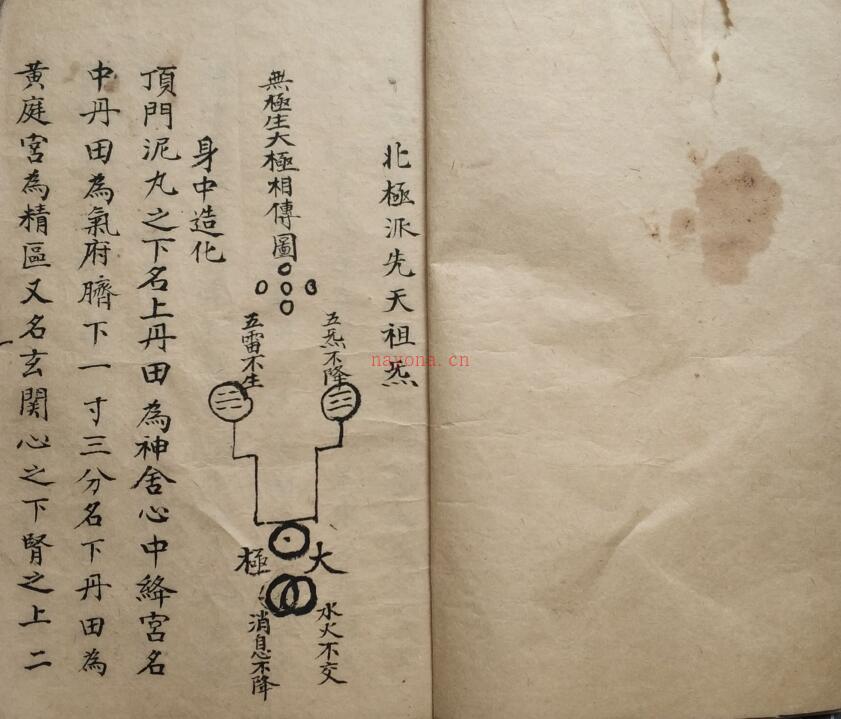 北極派先天祖炁
無極生大極相傳圖
五炁不降
五雷不生
大極
水火不交
消息不降
身中造化
頂門泥丸之下名上丹田為神舍心中絳宮名
中丹田為氣府臍下一寸三分名下丹田為
黃庭宮為精區又名玄関心之下腎之上二
nayona.cn